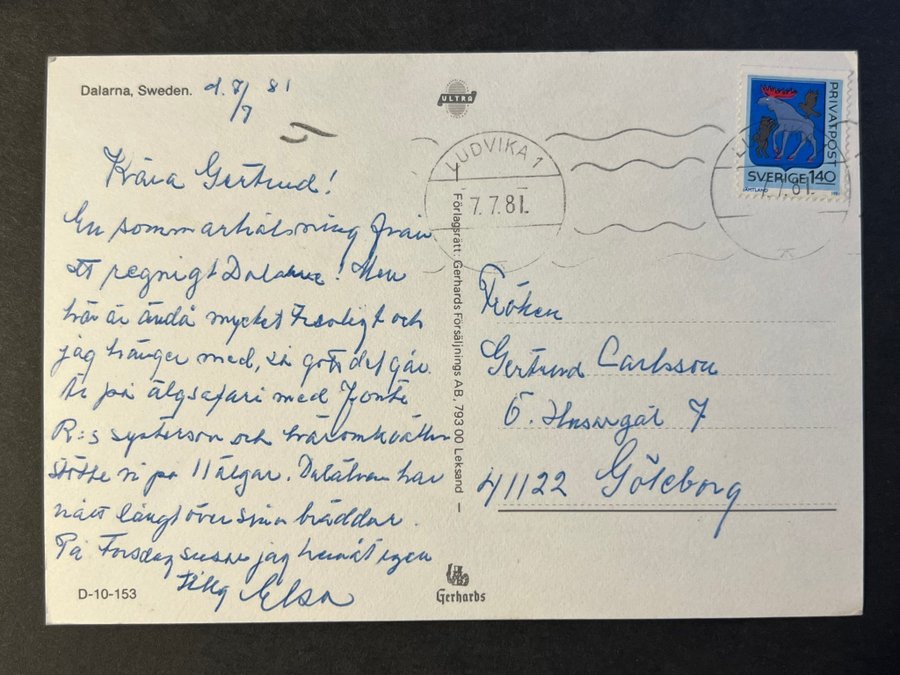 Dalarna, Sweden. d. 7/7 81
ULTRA
Kära Gertrud!
En sommarhälsning från
ett regnigt Dalarne! Men
här är ändå mycket trevligt och
jag hänger med, så gott det går.
Är på älgsafari med
R:s systerson och häromkvällen
stötte vi på 11 älgar. Dalälven har
nått långt över sina bräddar.
På Torsdag susar jag hemåt igen
Elsa
D-10-153
Förlagsrätt: Gerhards Försäljnings AB, 793 00 Leksand
Gerhards
LUDVIKA 1
7.7.81
PRIVATPOST
SVERIGE 140
JÄMTLAND
7.7.81
Fröken
Gertrud Carlsson
Ö. Husargat 7
41122 Göteborg